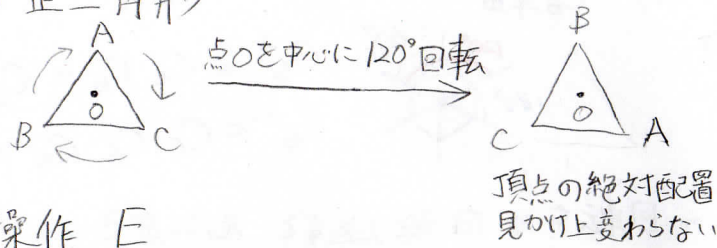 正三角形
A
B
C
O
点Oを中心に120°回転
B
C
A
O
頂点の絶対配置
見かけ上変わらない
操作 E